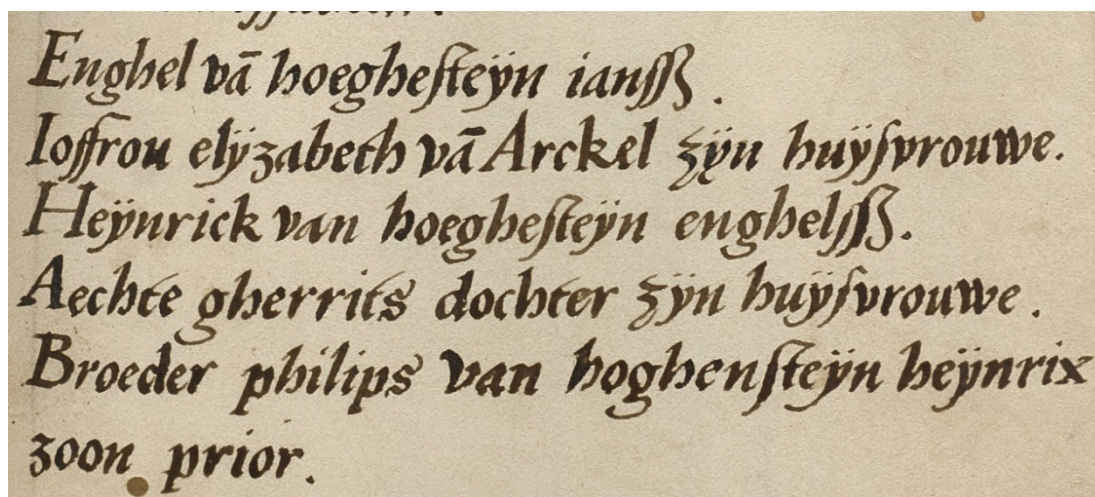 Enghel vā hoegheſteÿn ianſſʒ .
Ioffrou elÿzabeth vā Arckel zÿn huÿſvrouwe.
Heÿnrick van hoegheſteÿn enghelſſʒ.
Aechte gherrits dochter zÿn huÿſvrouwe .
Broeder philips van hoghenſteÿn heÿnrix
zoon prior.